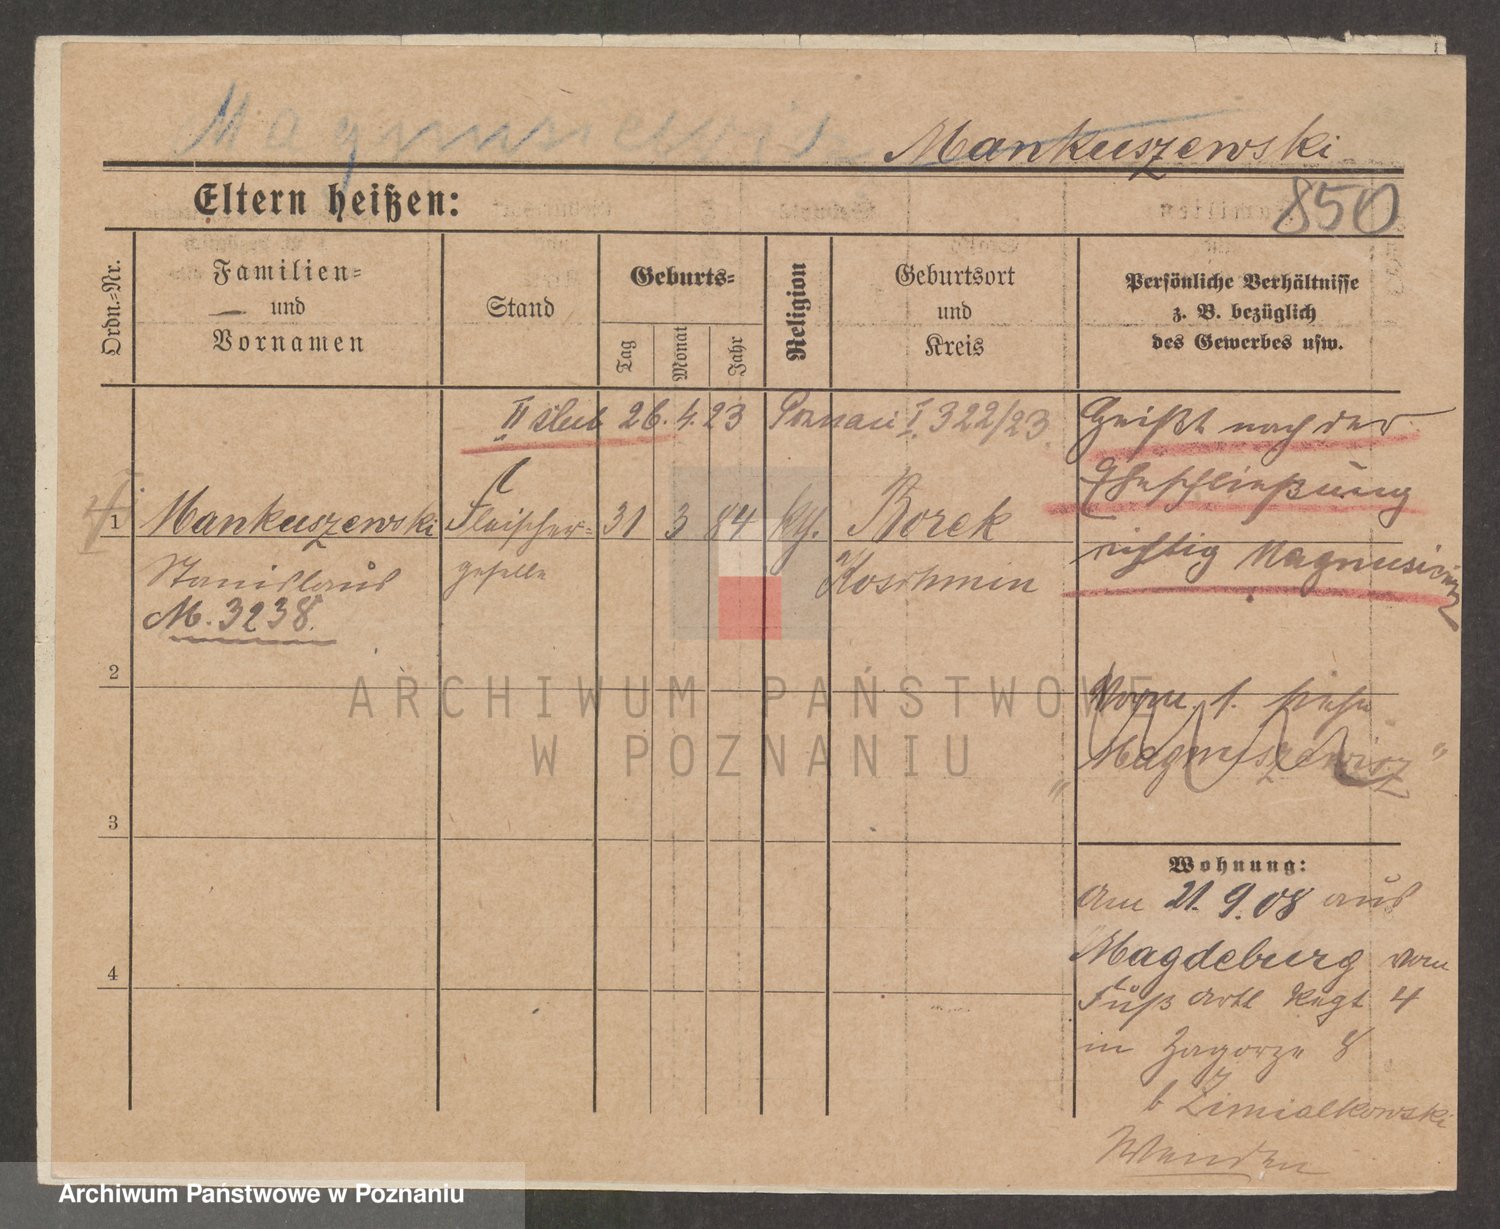 Magnusiewicz
Mankuszewski
850
Eltern heißen:
Ordn.=Nr.
Familien=
und
Vornamen
Stand
Geburts=
Tag
Monat
Jahr
Religion
Geburtsort
und
Kreis
Persönliche Verhältnisse
z. B. bezüglich
des Gewerbes usw.
II ślub 26. 4. 23 Poznań I 322/23.
Heißt nach der
Eheschließung
richtig Magnusiewicz
1
Mankuszewski
Stanislaus
M. 3238.
Fleischer=
geselle
31 3 84 kth.
Borek
Koschmin
2
"Magnuszewicz"
3
Wohnung:
Am 21. 9. 08 aus
Magdeburg vom
Fuß Artl Regt 4
in Zagorze 8
b Zimialkowski
4
ARCHIWUM PAŃSTWOWE
W POZNANIU
Archiwum Państwowe w Poznaniu